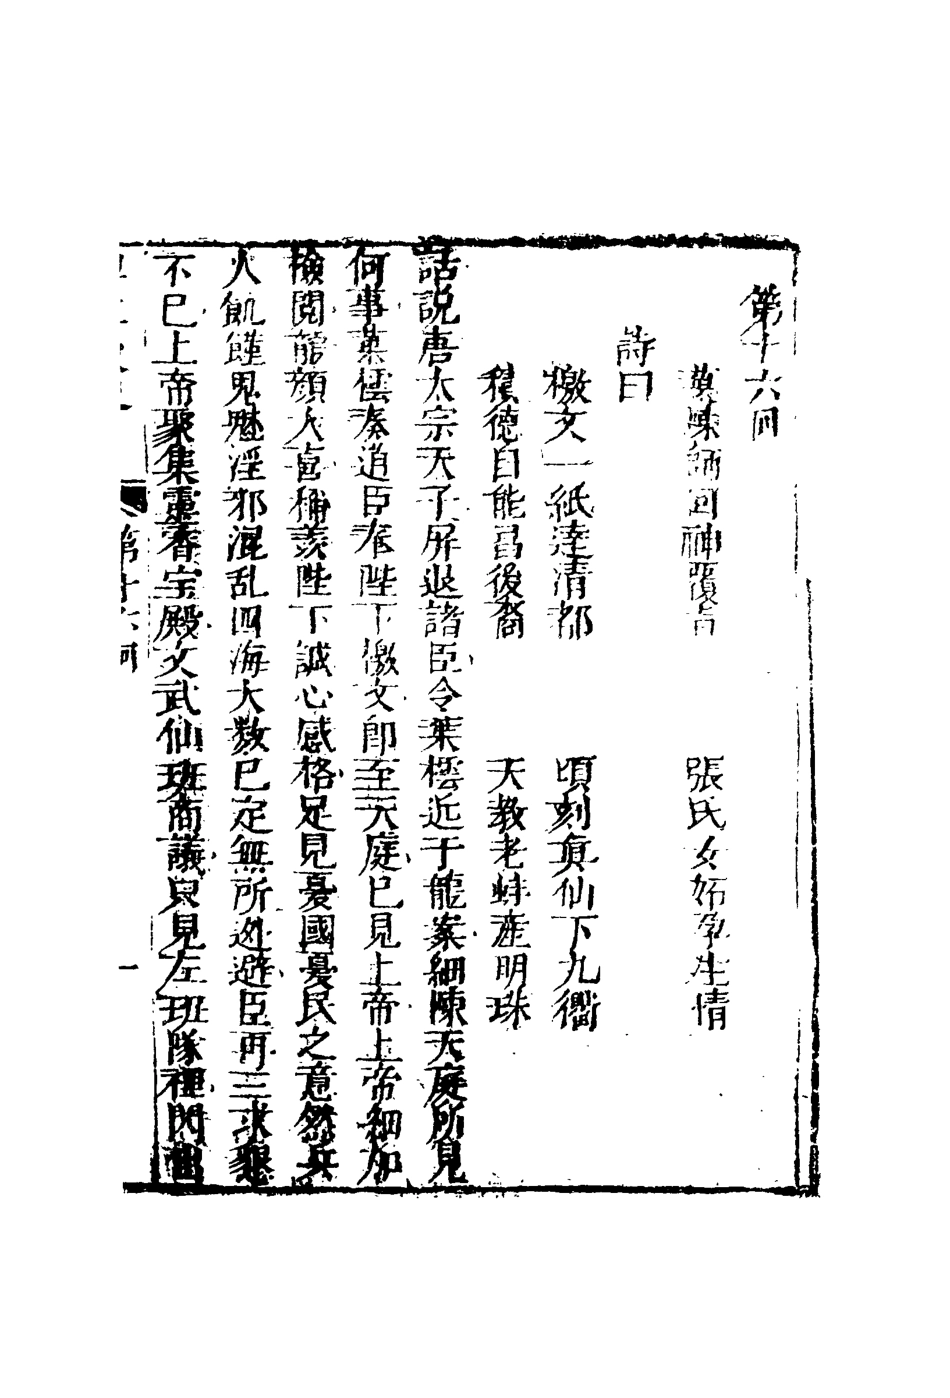 第十六囘
師囘神覆旨　張氏女妬孕生情
詩曰
檄文一紙達清都　頃刻真仙下九衢
積德自能昌後裔　天教老蚌產明珠
話說唐太宗天子屏退諸臣令葉橒近于龍案細陳天庭所見
何事葉橒奏道臣奉陛下檄文即至天庭已見上帝上帝細加
檢閱龍顏大喜稱羨陛下誠心感格足見憂國憂民之意然兵
火飢饉鬼魅淫邪混乱四海大数已定無所迯避臣再三求懇
不已上帝聚集靈霄宝殿文武仙班商議只見左班隊裡閃出
第十六囘
一